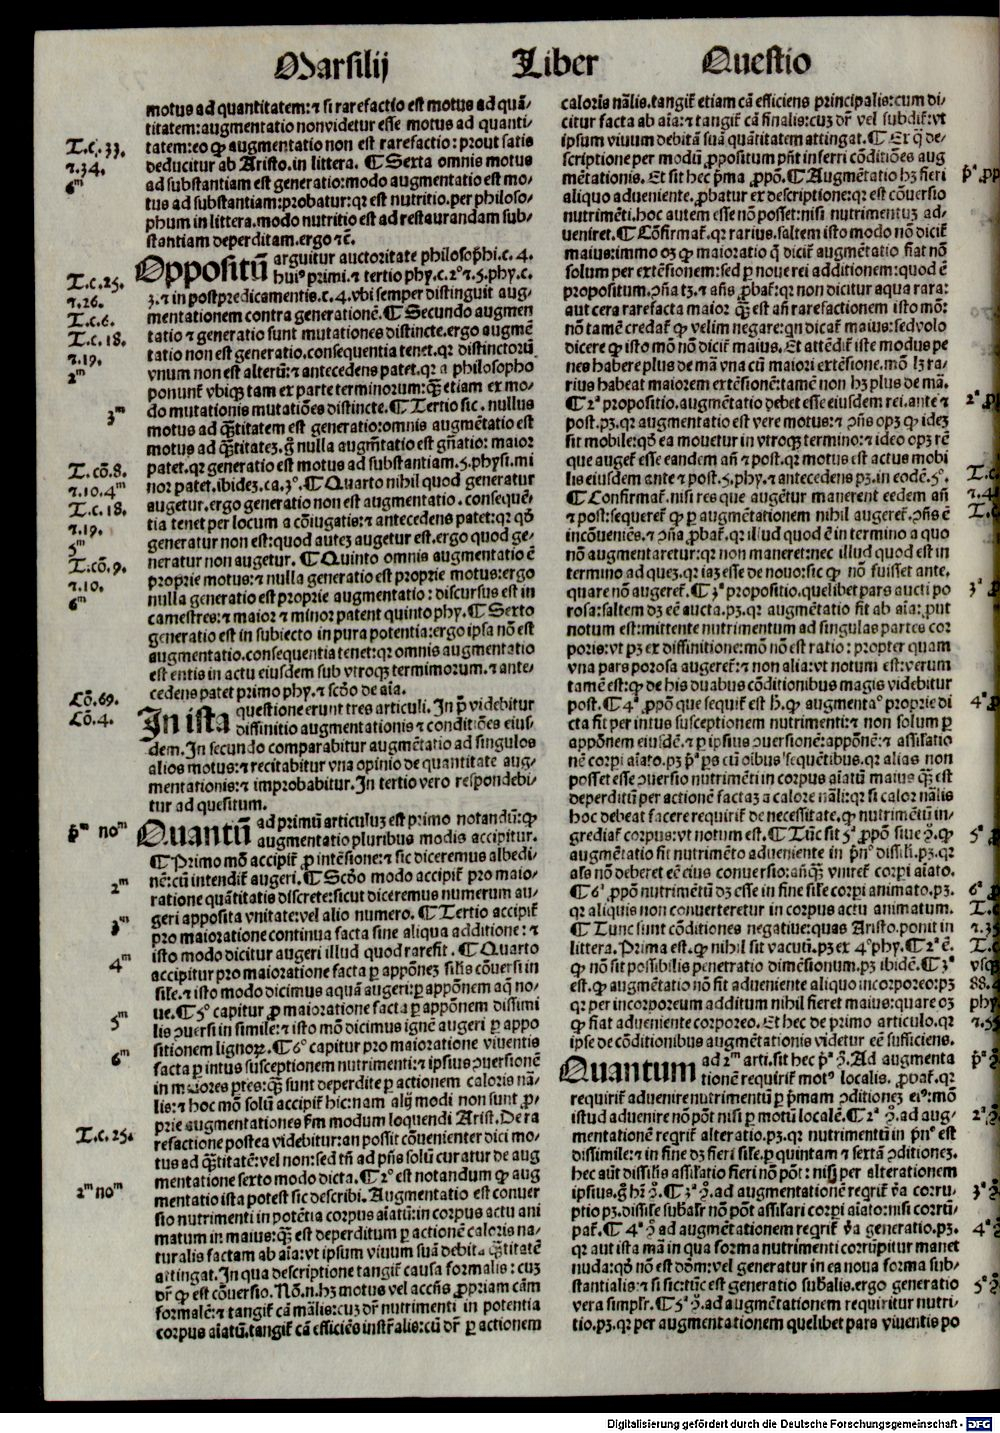 Marsilij Liber Questio
motus ad quantitatem:⁊ si rarefactio est motus ad quā/
titatem:augmentatio non videtur esse motus ad quanti/
tatem:eo ꝙ augmentatio non est rarefactio: prout satis
deducitur ab Aristo.in littera. ¶ Sexta omnis motus
ad substantiam est generatio:modo augmentatio est mo/
tus ad substantiam:probatur:qr est nutritio.per philoso/
phum in littera.modo nutritio est ad restaurandam sub/
stantiam deperditam.ergo ⁊c̄.
Oppositū arguitur auctoritate philosophi.c.4.
huiꝰ primi.⁊ tertio phy.c.2º ⁊.5.phy.c.
3.⁊ in postpredicamentis.c.4.vbi semper distinguit aug/
mentationem contra generationē. ¶ Secundo augmen
tatio ⁊ generatio sunt mutationes distincte.ergo augmē
tatio non est generatio.consequentia tenet.qr distinctorū
vnum non est alterū:⁊ antecedens patet.qr a philosopho
ponunt̄ vbiqꝫ tam ex parte terminorum:q̄ꝫ etiam ex mo/
do mutationis mutatiōes distincte. ¶ Tertio sic. nullus
motus ad q̄titatem est generatio:omnis augmētatio est
motus ad q̄titateꝫ.g̊ nulla augm̄tatio est gn̄atio: maior
patet.qr generatio est motus ad substantiam.5.physi.mi
nor patet.ibideꝫ.ca.3º. ¶ Quarto nihil quod generatur
augetur.ergo generatio non est augmentatio. consequē/
tia tenet per locum a cōiugatis:⁊ antecedens patet:qr qō
generatur non est:quod auteꝫ augetur est.ergo quod ge/
neratur non augetur. ¶ Quinto omnis augmentatio ē
proprie motus:⁊ nulla generatio est proprie motus:ergo
nulla generatio est proprie augmentatio: discursus est in
camestres:⁊ maior ⁊ minor patent quinto phy. ¶ Sexto
generatio est in subiecto in pura potentia:ergo ipsa nō est
augmentatio.consequentia tenet:qr omnis augmentatio
est entis in actu eiusdem sub vtroqꝫ termimorum.⁊ ante/
cedens patet primo phy.⁊ scōo de aīa.
In ista questione erunt tres articuli. In p̄ videbitur
diffinitio augmentationis ⁊ conditiōes eius/
dem. In secundo comparabitur augmētatio ad singulos
alios motus:⁊ recitabitur vna opinio de quantitate aug/
mentationis:⁊ improbabitur. In tertio vero respondebi/
tur ad quesitum.
Quantū ad primū articuluꝫ est primo notandū:ꝙ
augmentatio pluribus modis accipitur.
¶ Primo mō accipit̄ ꝓ intēsione:⁊ sic diceremus albedi/
nē:cū intendit̄ augeri. ¶ Scōo modo accipit̄ pro maio/
ratione quātitatis discrete:sicut diceremus numerum au/
geri apposita vnitate:vel alio numero. ¶ Tertio accipit̄
pro maioratione continua facta sine aliqua additione: ⁊
isto modo dicitur augeri illud quod rarefit. ¶ Quarto
accipitur pro maioratione facta ꝑ appōneꝫ silis cōuersi in
sile.⁊ isto modo dicimus aquā augeri:ꝑ appōnem aq̄ no/
ue. ¶ 5º capitur ꝓ maioratione facta ꝑ appōnem dissimi
lis ꝯuersi in simile:⁊ isto mō dicimus ignē augeri ꝑ appo
sitionem lignoꝝ. ¶ 6º capitur pro maioratione viuentis
facta ꝑ intus susceptionem nutrimenti:⁊ ipsius ꝯuersionē
in maiores ptes:q̄ꝫ sunt deperdite ꝑ actionem caloris nā/
lis:⁊ hoc mōo solū accipit̄ hic:nam alij modi non sunt ꝓ/
prie augmentationes ẜm modum loquendi Arist. De ra
refactione postea videbitur:an possit cōuenienter dici mo/
tus ad q̄titatē:vel non:sed tn̄ ad pn̄s solū curatur de aug
mentatione sexto modo dicta. ¶ 2º est notandum ꝙ aug
mentatio ista potest sic describi. Augmentatio est conuer
sio nutrimenti in potētia corpus aīatū:in corpus actu ani
matum in maius:q̄ꝫ est deperditum ꝑ actionē caloris na/
turalis factam ab aīa:vt ipsum viuum suā debitā q̄titatē
attingat. In qua descriptione tangit̄ causa formalis: cuꝫ
dr̄ ꝙ est cōuersio. Nō.n.hꝫ motus vel accn̄s ꝓpriam cām
formalē:⁊ tangit̄ cā mālis:cuꝫ dr̄ nutrimenti in potentia
corpus aīatū.tangit̄ cā efficiēs instr̄alis:cū dr̄ ꝑ actionem
caloris nālis.tangit̄ etiam cā efficiens principalis:cum di/
citur facta ab aīa:⁊ tangit̄ cā finalis:cuꝫ dr̄ vel subdit̄:vt
ipsum viuum debitā suā quātitatem attingat. ¶ Ex q̄ de/
scriptione per modū ꝓpositum pn̄t inferri cōditiōes aug
mētationis. Et sit hec p̄ma ꝓpō. ¶ Augmētatio hꝫ fieri
aliquo adueniente.ꝓbatur ex descriptione:qr est cōuersio
nutrimēti.hoc autem esse nō posset:nisi nutrimentuꝫ ad/
ueniret. ¶ Cōfirmat̄.qr rarius.saltem isto modo nō dicit̄
maius:immo oꝫ ꝙ maioratio q̄ dicit̄ augmētatio fiat nō
solum per extēsionem:sed ꝑ noue rei additionem:quod ē
propositum.ꝯn̄a tꝫ.⁊ an̄s ꝓbat̄:qr non dicitur aqua rara:
aut cera rarefacta maior q̄ꝫ est an̄ rarefactionem isto mō:
nō tamē credat̄ ꝙ velim negare:qn dicat̄ maius:sed volo
dicere ꝙ isto mō nō dicit̄ maius. Et attēdit̄ iste modus pe
nes habere plus de mā vna cū maiori extēsione.mō lꝫ ra/
rius habeat maiorem extēsionē:tamē non hꝫ plus de mā.
¶ 2ª propositio.augmētatio debet esse eiusdem rei.ante ⁊
post.pꝫ.qr augmentatio est vere motus:⁊ ꝯn̄s opꝫ ꝙ ideꝫ
sit mobile:qō ea mouetur in vtroqꝫ termino:⁊ ideo opꝫ rē
que auget̄ esse eandem an̄ ⁊ post.qr motus est actus mobi
lis eiusdem ante ⁊ post.5.phy.⁊ antecedens pꝫ.in eodē.5º.
¶ Confirmat̄.nisi res que augētur manerent eedem an̄
⁊ post:sequeret̄ ꝙ ꝑ augmētationem nihil augeret̄.ꝯn̄s ē
incōueniēs.⁊ ꝯn̄a ꝓbat̄.qr illud quod ē in termino a quo
nō augmentaretur:qr non maneret:nec illud quod est in
termino ad queꝫ.qr iaꝫ esse de nouo:sic ꝙ nō fuisset ante.
quare nō augeret̄. ¶ 3ª propositio.quelibet pars aucti po
rosa:saltem dꝫ eē aucta.pꝫ.qr augmētatio fit ab aīa: ꝓut
notum est:mittente nutrimentum ad singulas partes cor
poris:vt pꝫ ex diffinitione:mō nō est ratio: propter quam
vna pars porosa augeret̄:⁊ non alia:vt notum est:verum
tamē est:ꝙ de his duabus cōditionibus magis videbitur
post. ¶ 4ª ꝓpō que sequit̄ est h̄.ꝙ augmentaº proprie di
cta fit per intus susceptionem nutrimenti:⁊ non solum ꝑ
appōnem eiusdē.⁊ ꝑ ipsius ꝯuersionē:appōnē:⁊ assilatio
nē corpi aīato.pꝫ p̄ª ps cū oībus sequētibus.qr alias non
posset esse ꝯuersio nutrimēti in corpus aīatū maius q̄ꝫ est
deperditū per actionē factaꝫ a calore nāli:qr si calor nālis
hoc debeat facere requirit̄ de necessitate.ꝙ nutrimētū in/
grediat̄ corpus:vt notum est. ¶ Tūc sit 5ª ꝓpō siue ꝯ̄.ꝙ
augmētatio fit nutrimēto adueniente in p̄nº dissili.pꝫ.qr
als nō deberet eē eius conuersio:anq̄ꝫ vniret̄ corpi aīato.
¶ 6ª ꝓpō nutrimētū dꝫ esse in fine sile corpi animato.pꝫ.
qr aliquis non conuerteretur in corpus actu animatum.
¶ Tunc sunt cōditiones negatiue:quas Aristo.ponit in
littera. Prima est.ꝙ nihil sit vacuū.pꝫ ex 4º phy. ¶ 2ª ē.
ꝙ nō sit possibilis penetratio dimēsionum.pꝫ ibidē. ¶ 3ª
est.ꝙ augmētatio nō fit adueniente aliquo incorporeo:pꝫ
qr per incorporeum additum nihil fieret maius:quare oꝫ
ꝙ fiat adueniente corporeo. Et hec de primo articulo.qr
ipse de cōditionibus augmētationis videtur eē sufficiens.
Quantum ad 2m arti.sit hec p̄ª ꝯ̄. Ad augmenta
tionē requirit̄ motꝰ localis. ꝓbat̄.qr
requirit̄ aduenire nutrimentū ꝑ p̄mam ꝯditionez eiꝰ:mō
istud aduenire nō pōt nisi ꝑ motū localē. ¶ 2ª ꝯ̄.ad aug/
mentationē reqrit̄ alteratio.pꝫ.qr nutrimentū in p̄nº est
dissimile:⁊ in fine dꝫ fieri sile.ꝑ quintam ⁊ sextā ꝯditioneꝫ.
hec aūt dissilis assilatio fieri nō pōt: nisi per alterationem
ipsius.g̊ h̄i ꝯ̄. ¶ 3ª ꝯ̄.ad augmentationē reqrit̄ v̄a corru/
ptio pꝫ.dissile subalr̄ nō pōt assilari corpi aīato:nisi corrū/
pat̄. ¶ 4ª ꝯ̄ ad augmētationem reqrit̄ v̄a generatio.pꝫ.
qr aut ista mā in qua forma nutrimenti corrūpitur manet
nuda:qō nō est dōm:vel generatur in ea noua forma sub/
stantialis:⁊ si sic:tūc est generatio subālis.ergo generatio
vera simplr̄. ¶ 5ª ꝯ̄.ad augmētationem requiritur nutri/
tio.pꝫ.qr per augmentationem quelibet pars viuentis po
T.c.33.
⁊.34.
6m
T.c.25.
⁊.26.
T.c.6.
T.c.18.
⁊.19.
2m
3m
T.cō.8.
⁊.10.4m
T.c.18.
⁊.19.
5m
T.cō.9.
⁊.10.
6m
Cō.69.
Cō.4.
p̄m nom
2m
3m
4m
5m
6m
T.c.25.
2m nom
Digitalisierung gefördert durch die Deutsche Forschungsgemeinschaft - DFG